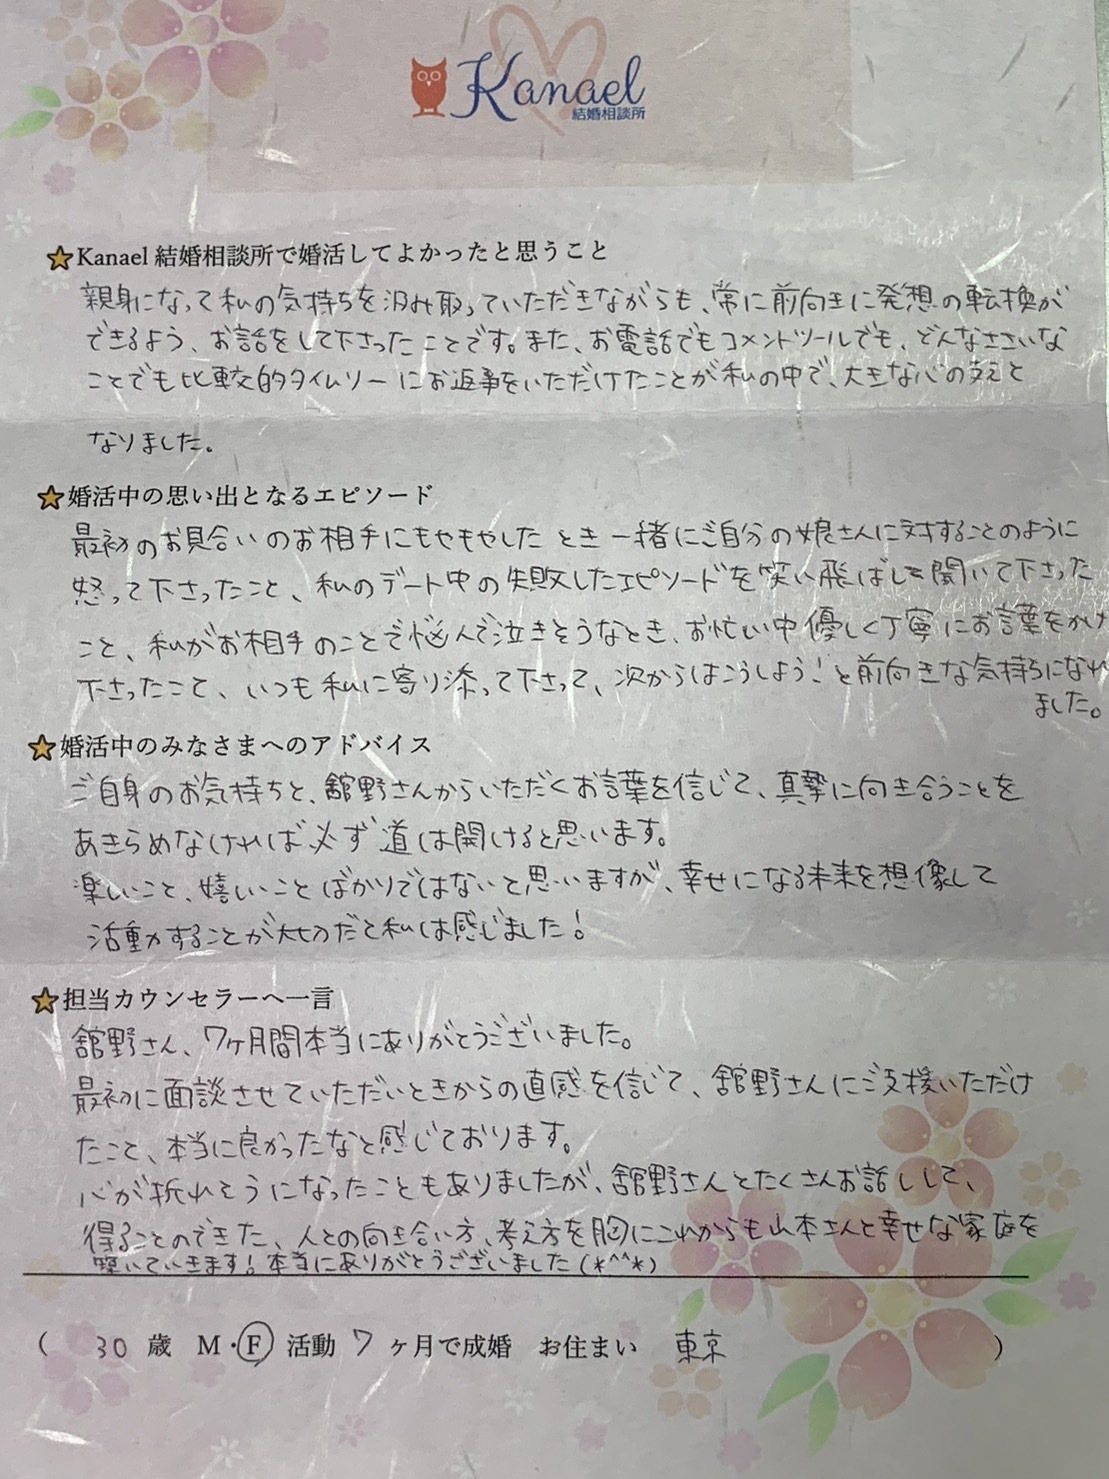 Kanael
結婚相談所
Kanael 結婚相談所で婚活してよかったと思うこと
親身になって私の気持ちを汲み取っていただきながらも、常に前向きに発想の転換が
できるよう、お話をして下さったことです。また、お電話でもコメントツールでも、どんなささいな
ことでも比較的タイムリーにお返事をいただけたことが私の中で、大きな心の支えと
なりました。
婚活中の思い出となるエピソード
最初のお見合いのお相手にもやもやしたとき一緒にご自分の娘さんに対することのように
怒って下さったこと、私のデート中の失敗したエピソードを笑い飛ばして聞いて下さった
こと、私がお相手のことで悩んで泣きそうなとき、お忙い中優しく丁寧にお言葉をかけ
下さったこと、いつも私に寄り添って下さって、次からはこうしよう!と前向きな気持ちになれ
ました。
婚活中のみなさまへのアドバイス
ご自身のお気持ちと、舘野さんからいただくお言葉を信じて、真摯に向き合うことを
あきらめなければ必ず道は開けると思います。
楽しいこと、嬉しいことばかりではないと思いますが、幸せになる未来を想像して
活動することが大切だと私は感じました!
担当カウンセラーへ一言
舘野さん、7ヶ月間本当にありがとうございました。
最初に面談させていただいときからの直感を信じて、舘野さんにご支援いただけ
たこと、本当に良かったなと感じております。
心が折れそうになったこともありましたが、舘野さんとたくさんお話しして、
得ることのできた、人との向き合い方、考え方を胸にこれからも山本さんと幸せな家庭を
築いていきます!本当にありがとうございました(*^^*)
( 30 歳 M・F 活動 7 ヶ月で成婚 お住まい 東京 )